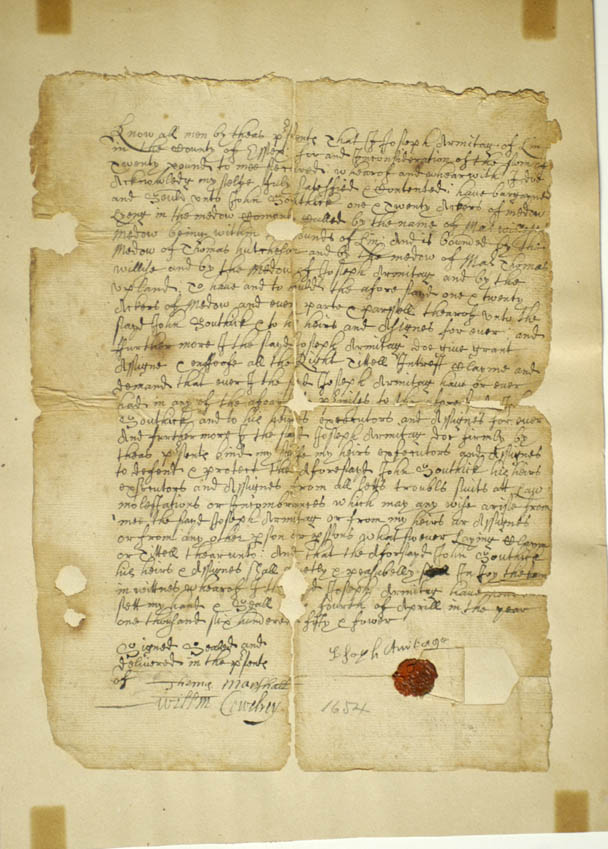 Know all men by theas psents That I Joseph Armitag of Lin
in the County of Essex for and Inconsideration of the som of
Twenty pound to mee received whearof and whearwith I doe
Acknowledg my selfe fully sattesfied & Contented have bargened
and Sould unto John Southick one & Twenty Ackers of medow
Lying in the medow Comonly Called by the name of
medow being within bounds of Lin And is bounded by the
medow of Thomas hutcheson and by the medow of Thomas
willise and by the medow of Joseph Armitag and by the
upland To have and to hould the afore sayd one & twenty
Ackers of Medow and every parte & parssell thearof unto the
sayd John Southick & to his heirs and Assignes for ever and
further more I the sayd Joseph Armitag doe give grant
Assigne & enffoffe all the Right Tittell Intrest Clayme and
demand that ever I the sd Joseph Armitag have or ever
had in any of the afoar to the
Southick and to his heires executors and Assignes for ever
And furthermore I the sayd Joseph Armitag doe firmly by
theas psents bind my selfe my heirs exsecutors and Assignes
to defend & protect the aforesaid John Southick his heirs
exsecutors and Assignes from all letts troubls suits att Law
molestations or Incomborances which may any wise arise from
mee the sayd Joseph Armitag or from my heirs or Assignes
or from any other pson or psons whatsoever Laying Clayme
or Tittell thearunto And that the aforsayd John Southick
his heirs & Assignes shall peasabelly In Joy the
in wittnes whearof I the Joseph Armitag have
sett my hand & Seall fourth of Aprill in the year
one thousand six hundered fifty & fower
Signed Sealed and
delivered in the psents
of
Joseph Armitage
Thomas Marshall
Willm
1654